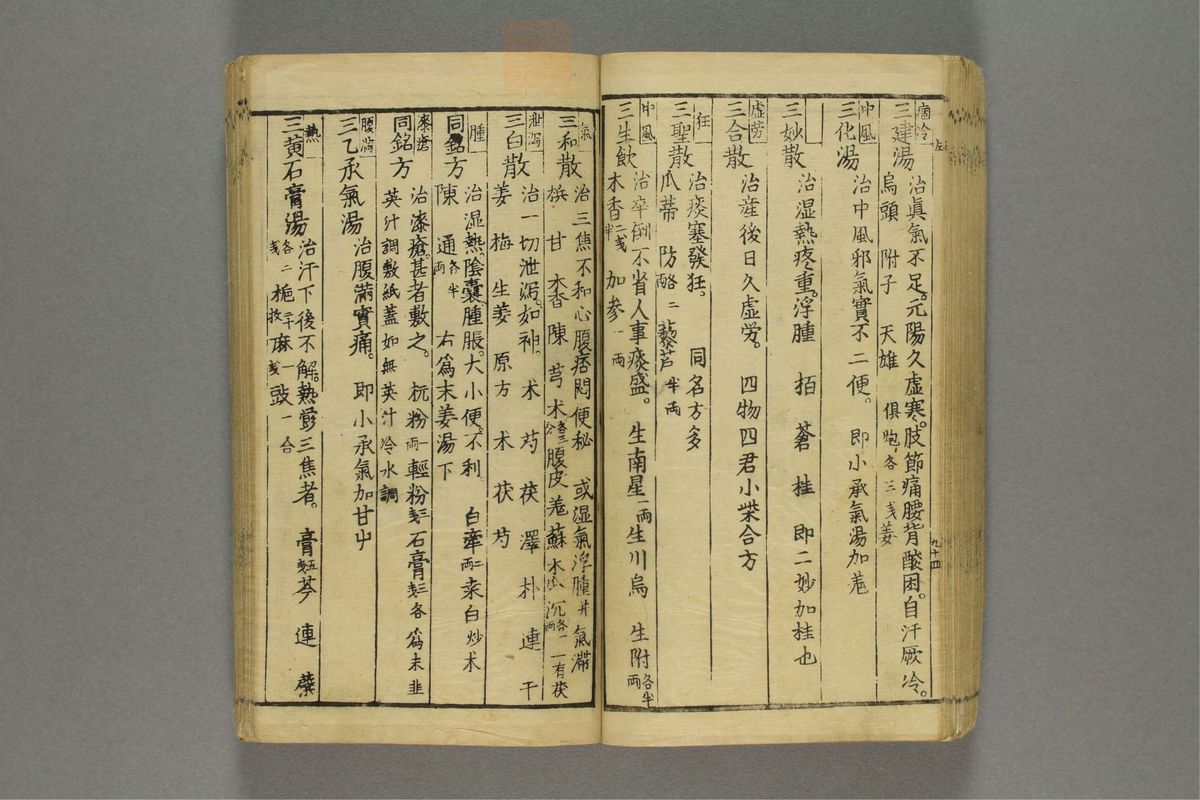 痼冷 三建湯 治眞氣不足。元陽久虛寒。肢節痛腰背酸困。自汗厥冷。
烏頭 附子 天雄 俱炮各三戔 姜
中風 三化湯 治中風邪氣實不二便。 即小承氣湯加羗
三妙散 治湿熱疼重。浮腫 栢 蒼 桂 即二妙加桂也
虛労 三合散 治産後日久虛労。 四物四君小柴合方
狂 三聖散 治痰塞發狂。 同名方多
瓜蒂 防各二兩 藜芦半兩
中風 三生飲 治卒倒不省人事痰盛。 生南星一兩 生川烏 生附各半兩
木香二戔半 加参一兩
九十四
氣 三和散 治三焦不和心腹痞悶便秘 或湿氣浮腫并氣滞
梹 甘 木香 陳 芎 术各三分 腹皮 羗 蘇 木瓜 沉各一兩 一有茯
泄瀉 三白散 治一切泄瀉。如神。 术 芍 茯 澤 朴 連 干
姜 梅 生姜 原方 术 茯 芍
腫 同銘方 治湿熱。陰囊腫脹。大小便。不利 白牽二兩 桒白炒 术
陳 通各半兩 右爲末姜湯下
漆瘡 同銘方 治漆瘡。甚者敷之。 杭粉一兩 輕粉三戔 石膏三戔 各爲末韭
英汁調敷紙蓋如無英汁冷水調
腹滿 三乙承氣湯 治腹滿實痛。 即小承氣加甘屮
熱 三黄石膏湯 治汗下後不解。熱欝三焦者。 膏五戔 芩 連 蘗
各二戔 梔三十枚 麻一戔 豉一合